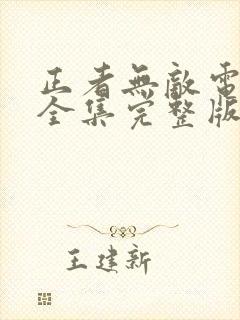 正者無敵電
全集完整版
王建新